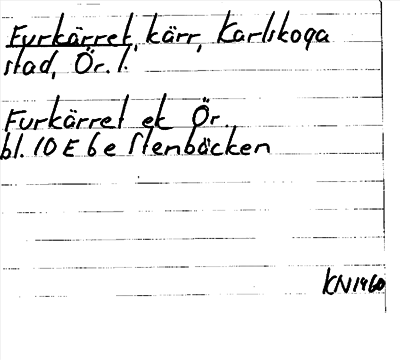 Furkärret, kärr, Karlskoga
stad, Ör. l.
Furkärret ek Ör.
bl. 10 E 6 e Stenbäcken
KN 1960